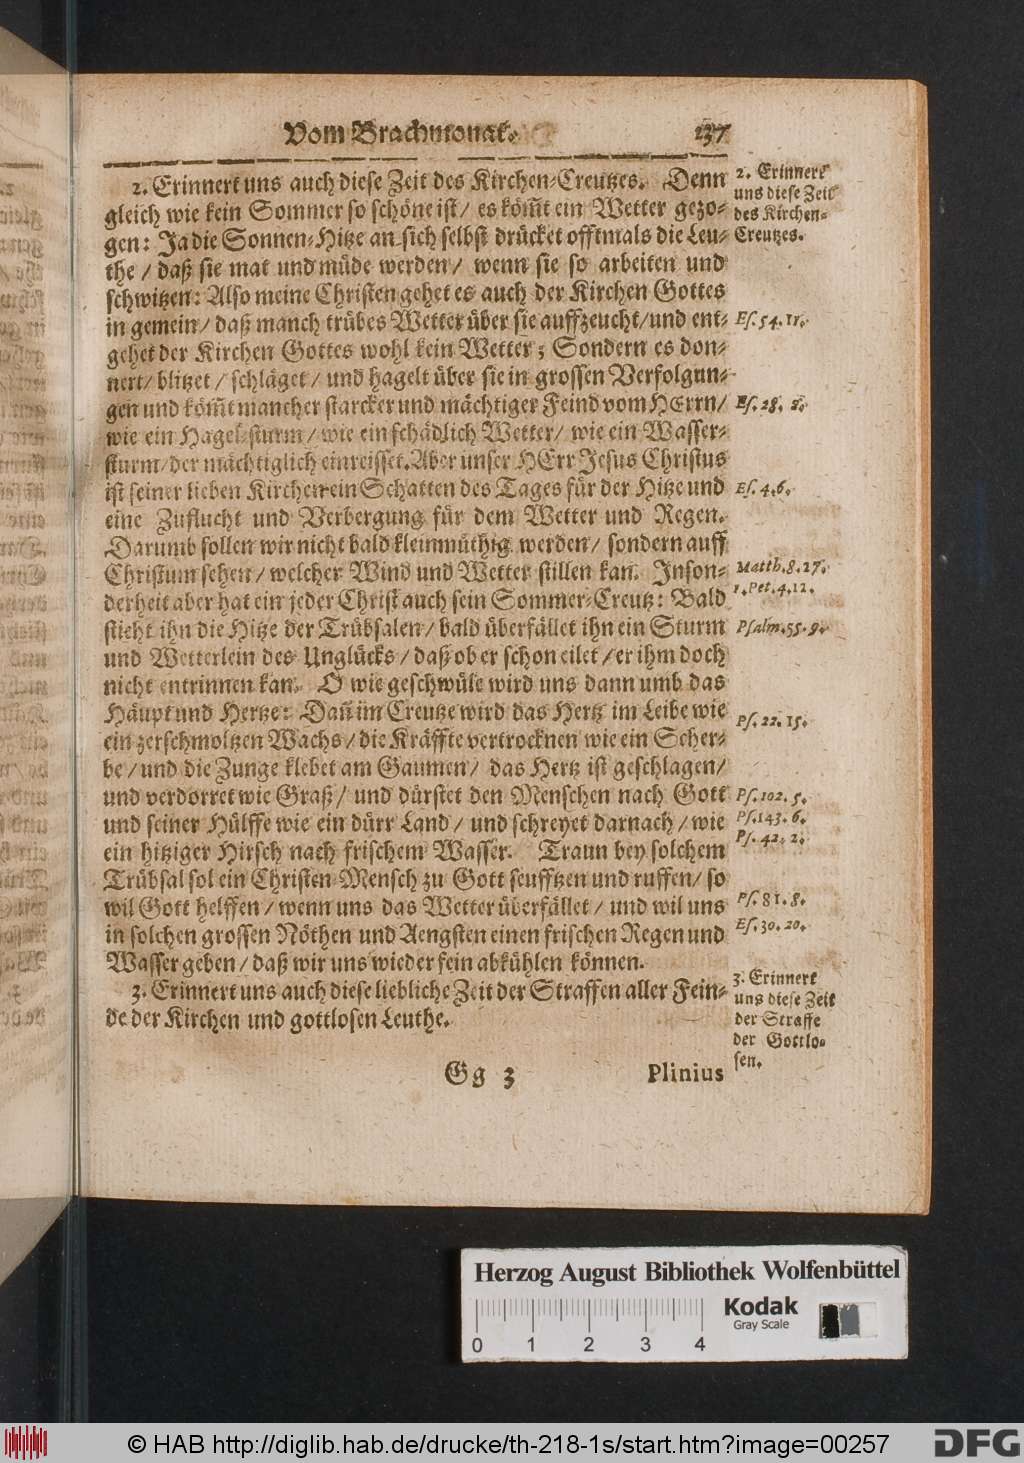 Vom Brachmonat. 137
2. Erinnert uns auch diese Zeit des Kirchen-Creutzes. Denn
gleich wie kein Sommer so schöne ist / es köm̃t ein Wetter gezo-
gen: Ja die Sonnen-Hitze an sich selbst drücket offtmals die Leu-
the / daß sie mat und müde werden / wenn sie so arbeiten und
schwitzen: Also meine Christen gehet es auch der Kirchen Gottes
in gemein / daß manch trübes Wetter über sie auffzeucht / und ent-
gehet der Kirchen Gottes wohl kein Wetter; Sondern es don-
nert / blitzet / schläget / und hagelt über sie in grossen Verfolgun-
gen und köm̃t mancher starcker und mächtiger Feind vom HErrn /
wie ein Hagel-sturm / wie ein schädlich Wetter / wie ein Wasser-
sturm / der mächtiglich einreisset. Aber unser HErr Jesus Christus
ist seiner lieben Kirchen ein Schatten des Tages für der Hitze und
eine Zuflucht und Verbergung für dem Wetter und Regen.
Darumb sollen wir nicht bald kleinmüthig werden / sondern auff
Christum sehen / welcher Wind und Wetter stillen kan. Inson-
derheit aber hat ein jeder Christ auch sein Sommer-Creutz: Bald
sticht ihn die Hitze der Trübsalen / bald überfället ihn ein Sturm
und Wetterlein des Unglücks / daß ob er schon eilet / er ihm doch
nicht entrinnen kan. O wie geschwüle wird uns dann umb das
Häupt und Hertze: Dañ im Creutze wird das Hertz im Leibe wie
ein zerschmoltzen Wachs / die Kräffte vertrocknen wie ein Scher-
be / und die Zunge klebet am Gaumen / das Hertz ist geschlagen /
und verdorret wie Graß / und dürstet den Menschen nach Gott
und seiner Hülffe wie ein dürr Land / und schreyet darnach / wie
ein hitziger Hirsch nach frischem Wasser. Traun bey solchem
Trübsal sol ein Christen-Mensch zu Gott seufftzen und ruffen / so
wil Gott helffen / wenn uns das Wetter überfället / und wil uns
in solchen grossen Nöthen und Aengsten einen frischen Regen und
Wasser geben / daß wir uns wieder fein abkühlen können.
3. Erinnert uns auch diese liebliche Zeit der Straffen aller Fein-
de der Kirchen und gottlosen Leuthe.
Gg 3 Plinius
2. Erinnert
uns diese Zeit
des Kirchen-
Creutzes.
Es. 54. 11.
Es. 28. 2.
Es. 4. 6.
Matth. 8. 27.
1. Pet. 4. 12.
Psalm. 55. 9.
Ps. 22. 15.
Ps. 102. 5.
Ps. 143. 6.
Ps. 42. 2.
Ps. 81. 8.
Es. 30. 20.
3. Erinnert
uns diese Zeit
der Straffe
der Gottlo-
sen.
Herzog August Bibliothek Wolfenbüttel
Kodak
Gray Scale
0 1 2 3 4
© HAB http://diglib.hab.de/drucke/th-218-1s/start.htm?image=00257
DFG